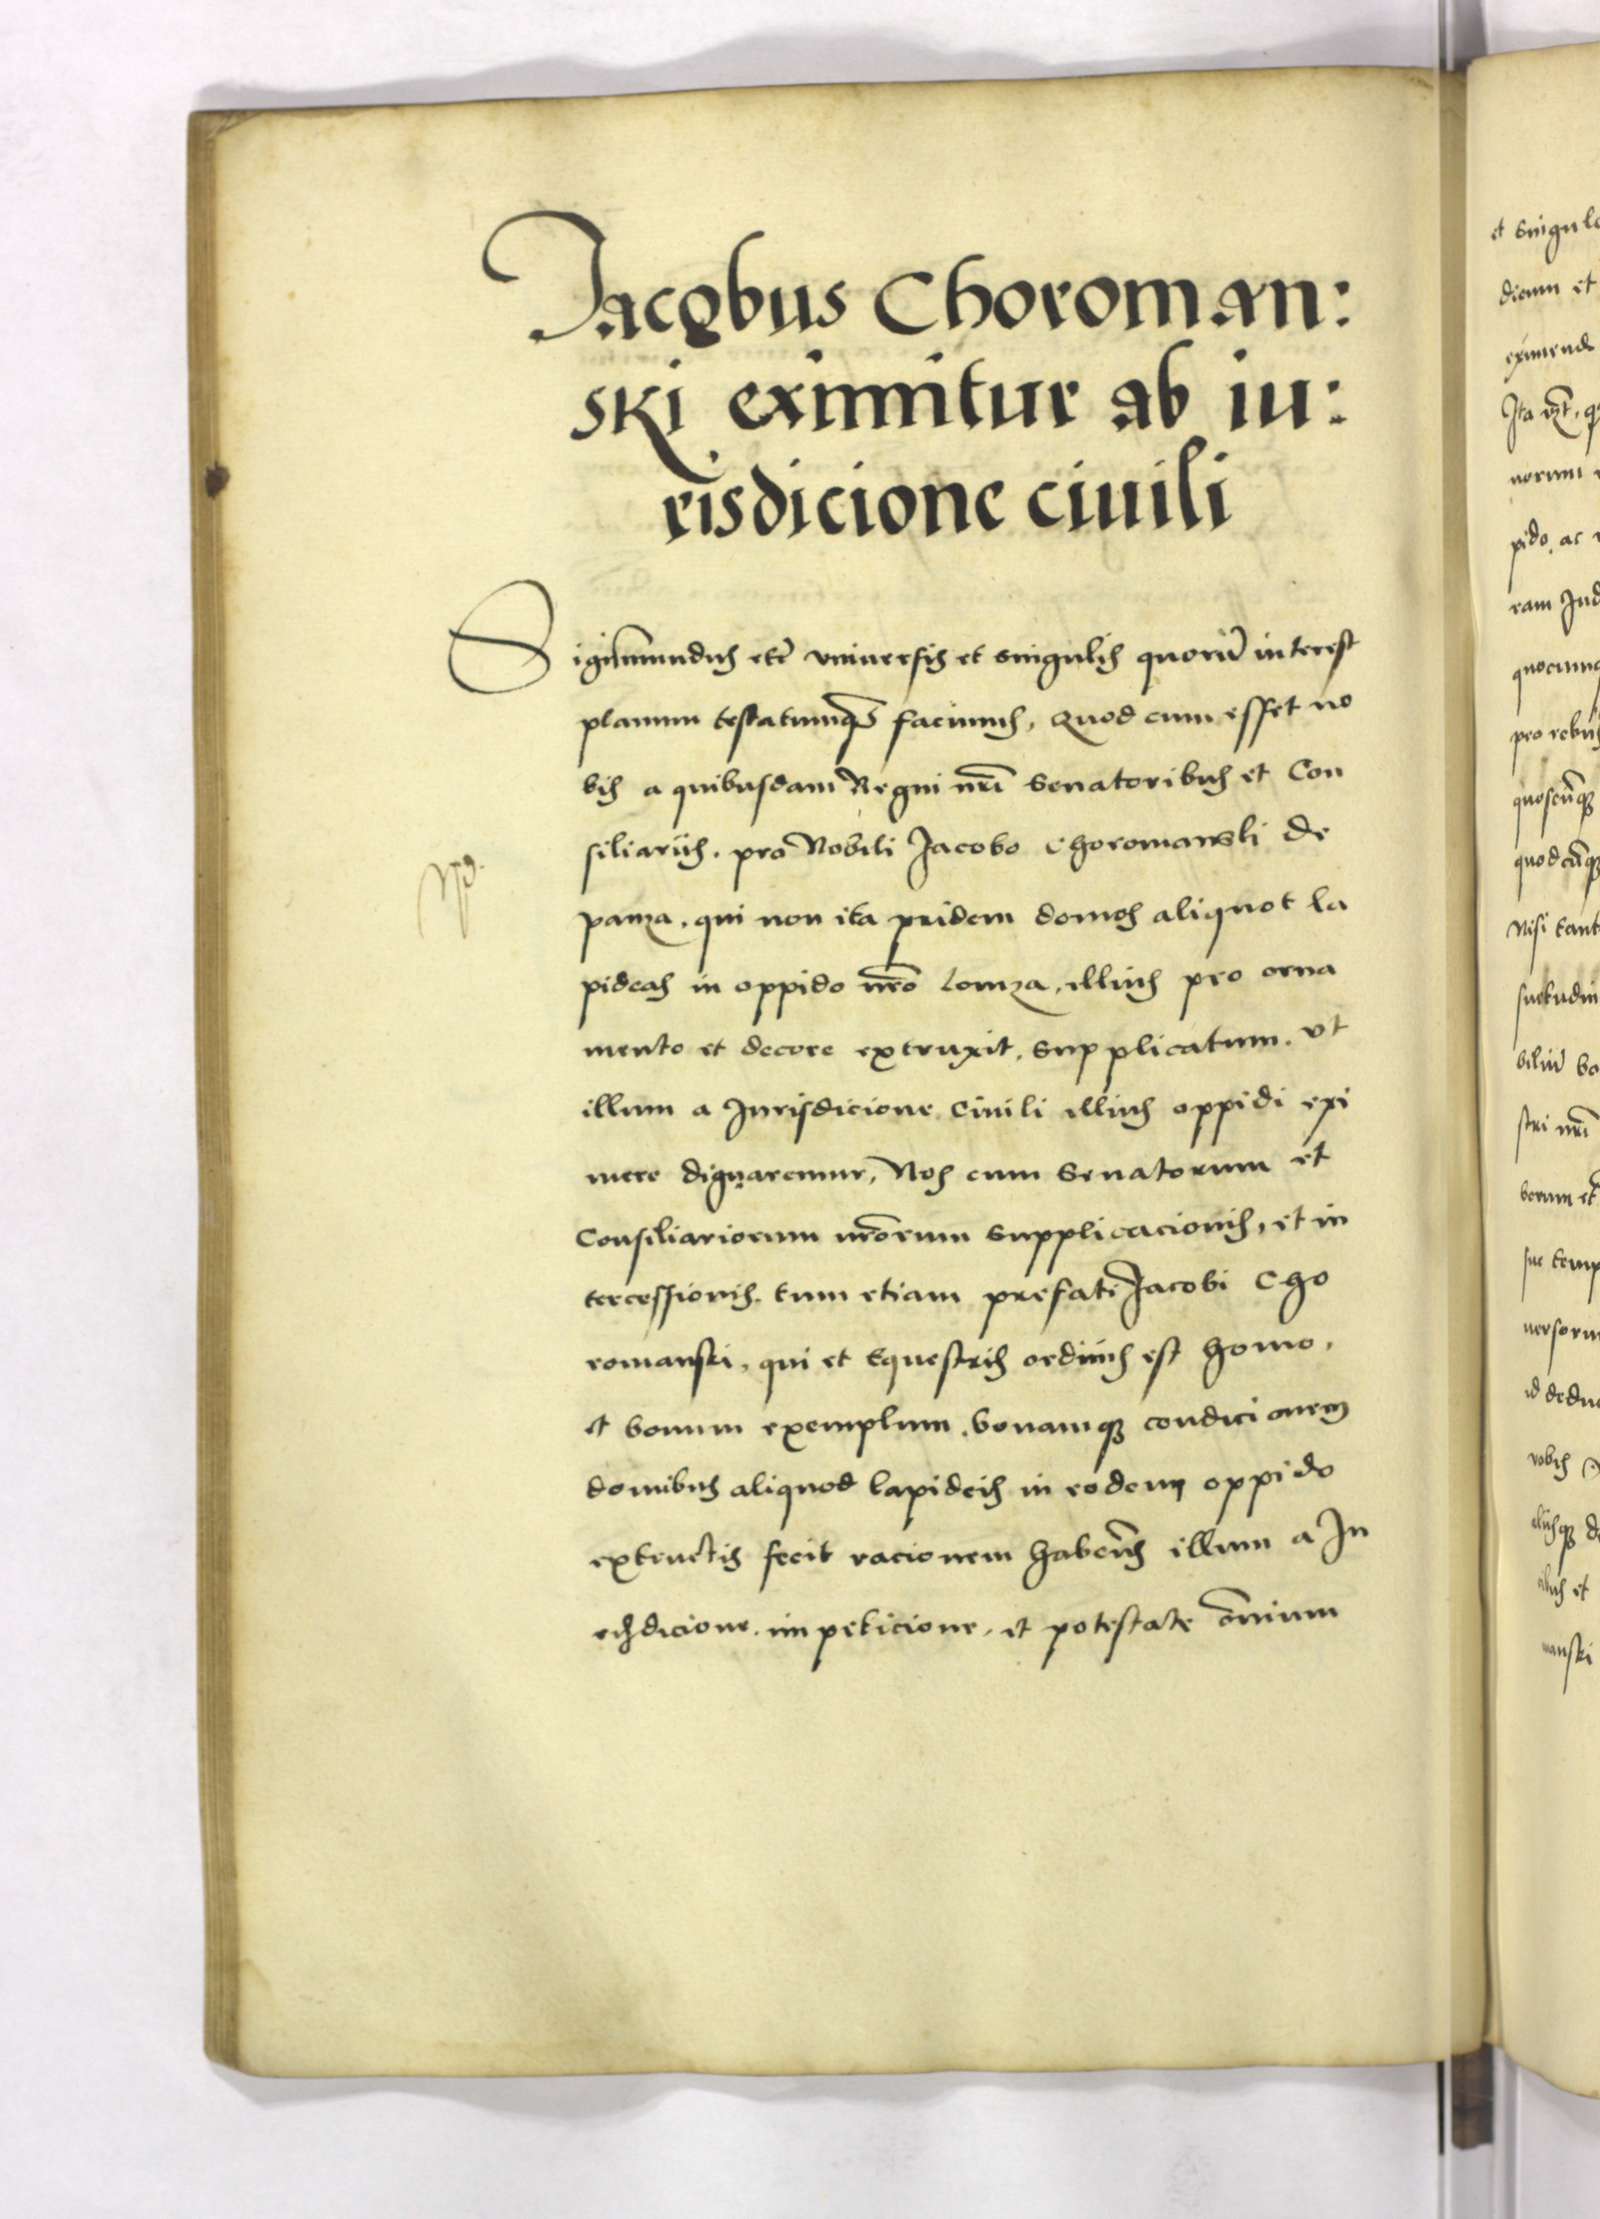 Jacobus Choroman:
ski eximitur ab iu:
risdicione ciuili
Sigismundus etc̃ vniuersis et singulis quorũ interest
planum testatumq̃ facimus, Quod cum esset no
bis a quibusdam Regni nr̃i Senatoribus et Con
siliariis. pro Nobili Jacobo Choromanski de
panza. qui non ita pridem domos aliquot la
pideas in oppido nr̃o Lomza, illius pro orna
mento et decore extruxit, supplicatum. vt
illum a Jurisdicione Ciuili illius oppidi exi
mere dignaremur, Nos cum Senatorum et
Consiliariorum nr̃orum supplicacionis, et in
tercessionis. tum etiam prefati Jacobi Cho
romanski, qui et Equestris ordinis est homo,
et bonum exemplum, bonamq; condicionem
domibus aliquod lapideis in eodem oppido
extructis fecit racionem haben̄s illum a Ju
risdicione. impeticione, et potestate om̃nium
et singulo
dicum et
eximend
Ita vz̃t, q
norum
pido, ac
ram Jud
quocumq
pro rebus
quoscũq;
quodcũq;
Nisi tant
suetudin
biliũ bo
stri nr̃i
borum et
sue temp
uersorum
id deduc
vobis
manski